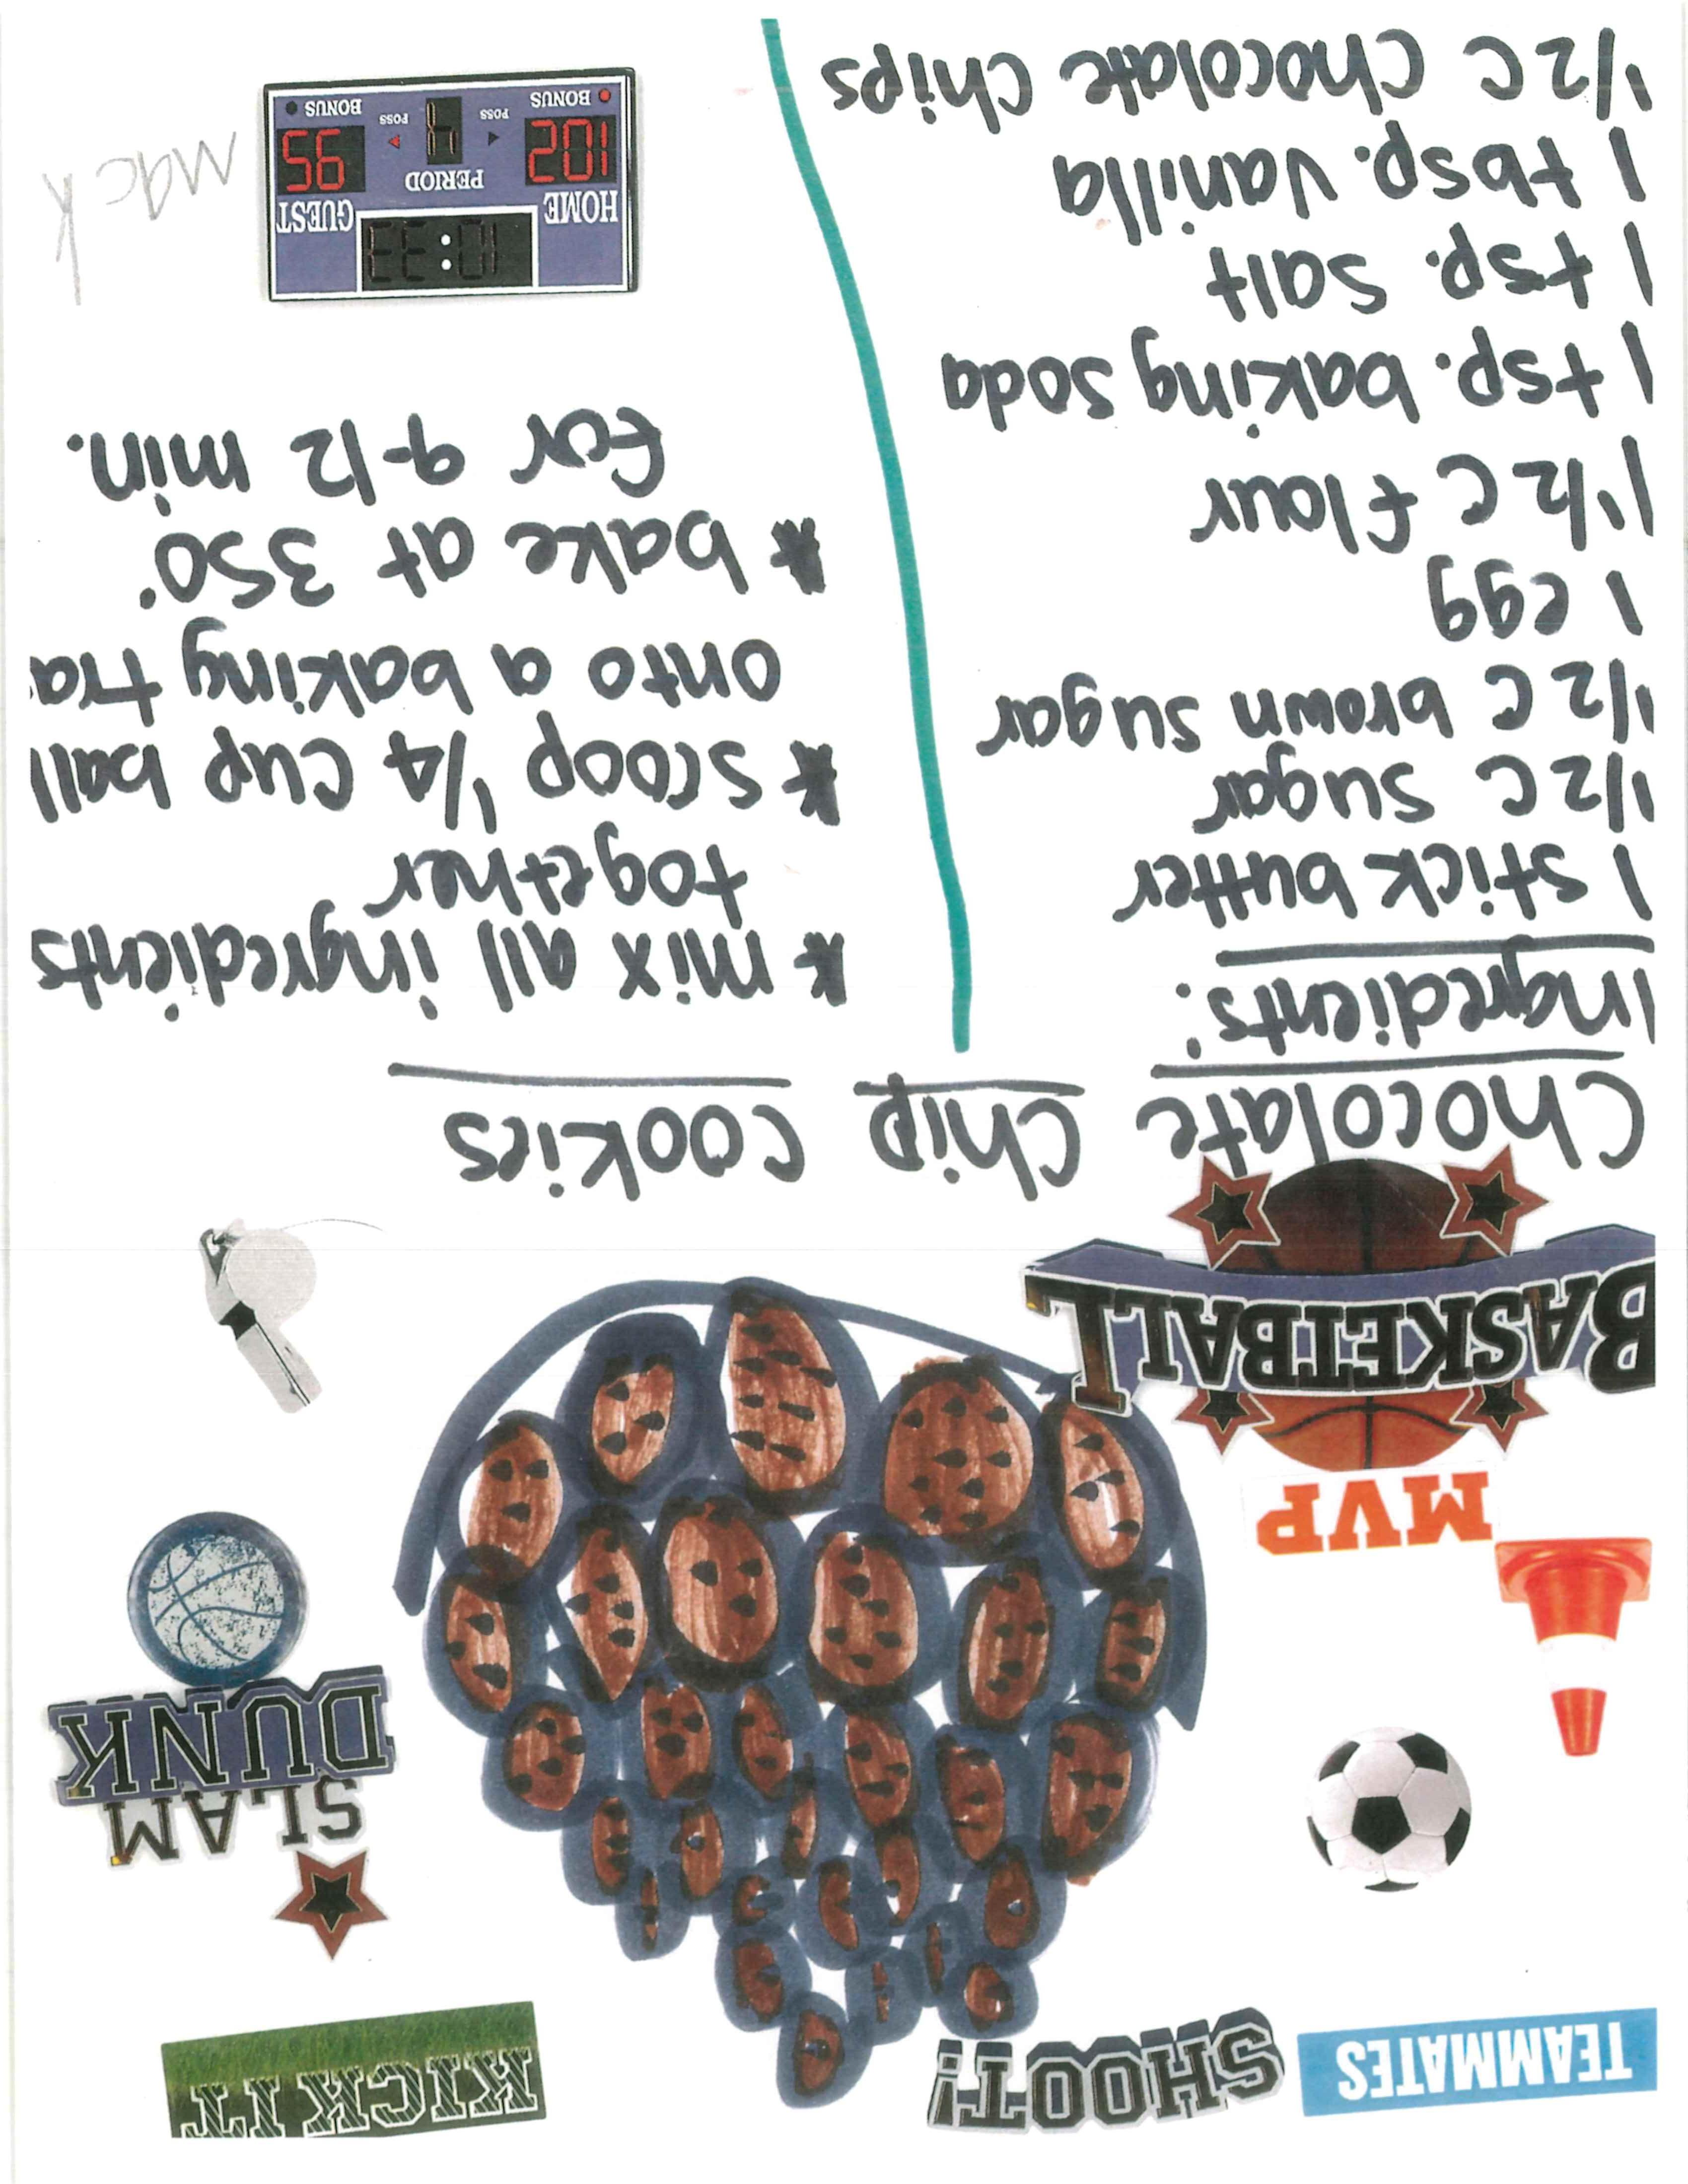 TEAMMATES
SHOOT!
KICK IT
SLAM
DUNK
MVP
BASKETBALL
Chocolate Chip Cookies
Ingredients:
1 stick butter
1/2 C sugar
1/2 C brown sugar
1 egg
1 1/2 C flour
1 tsp. baking soda
1 tsp. salt
1 tbsp. vanilla
1/2 C chocolate chips
* mix all ingredients
together
* scoop 1/4 cup ball
onto a baking tra
* bake at 350°
for 9-12 min.
10:33
HOME GUEST
PERIOD
102 4 95
POSS POSS
BONUS BONUS
Mack